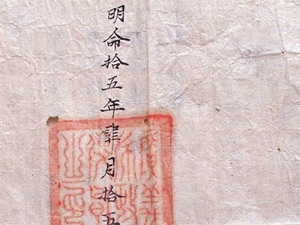 明命拾五年肆月拾五